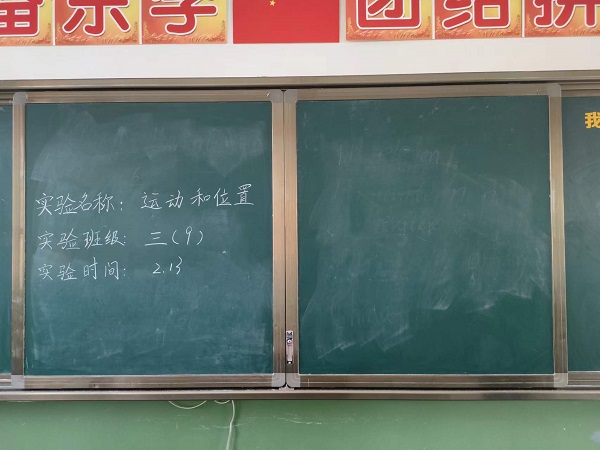 乐学
团结拼
我
实验名称：运动和位置
实验班级：三（9）
实验时间：2.13